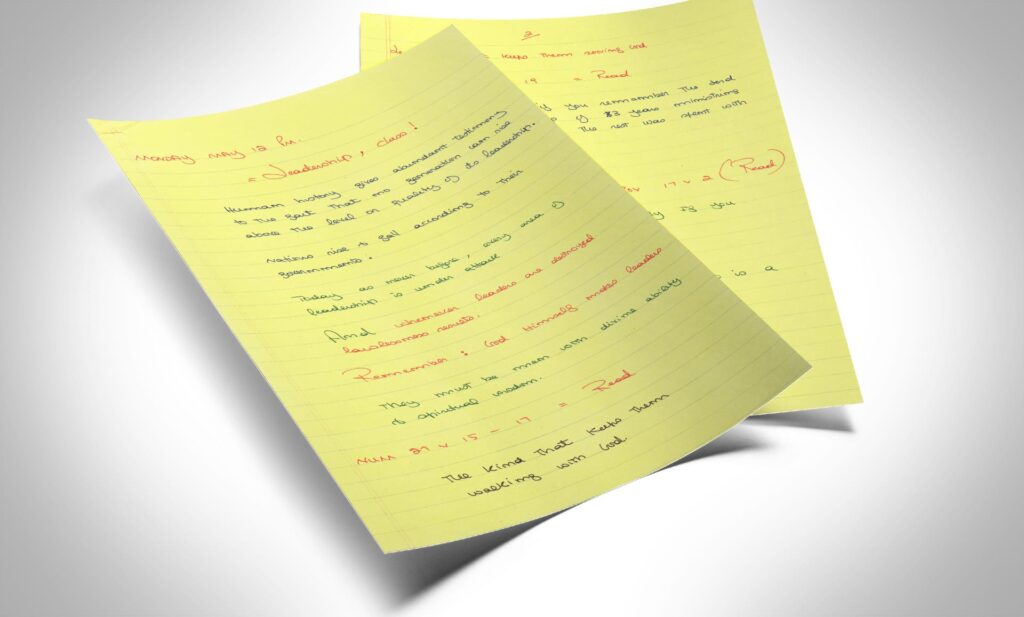 Monday May 12 pm.
= Leadership, class!
Human history gives abundant testimony
to the fact that no generation can rise
above the level or quality of its leadership.
Nations rise & fall according to their
governments.
Today as never before, every area of
leadership is under attack
And whenever leaders are destroyed
lawlessness results.
Remember: God Himself makes leaders
They must be men with divine ability
& spiritual wisdom.
Num 27 v 15 - 17 = Read
The kind that keeps them
walking with God
2
keeps them serving God
19 = Read
if you remember the Lord
of 3 years ministering
The rest was spent with
17 v 2 (Read)
if you
is a